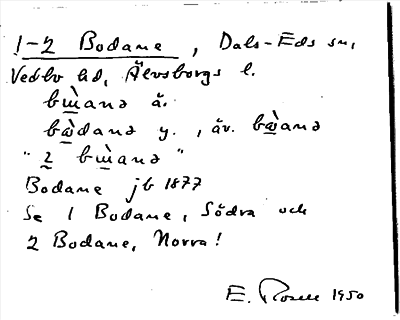 1-2 Bodane, Dals-Eds sn,
Vedbo hd, Älvsborgs l.
bɯ̀anə ä.
bɯ̀danə y., äv. bɯ̀anə
"2 bɯ̀anə"
Bodane jb 1877
Se 1 Bodane, Södra och
2 Bodane, Norra!
E. Rosell 1950